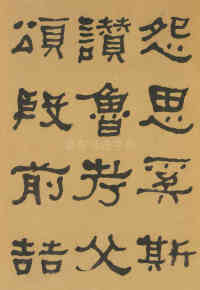 怨思奚斯
讚魯考父
頌殷前喆